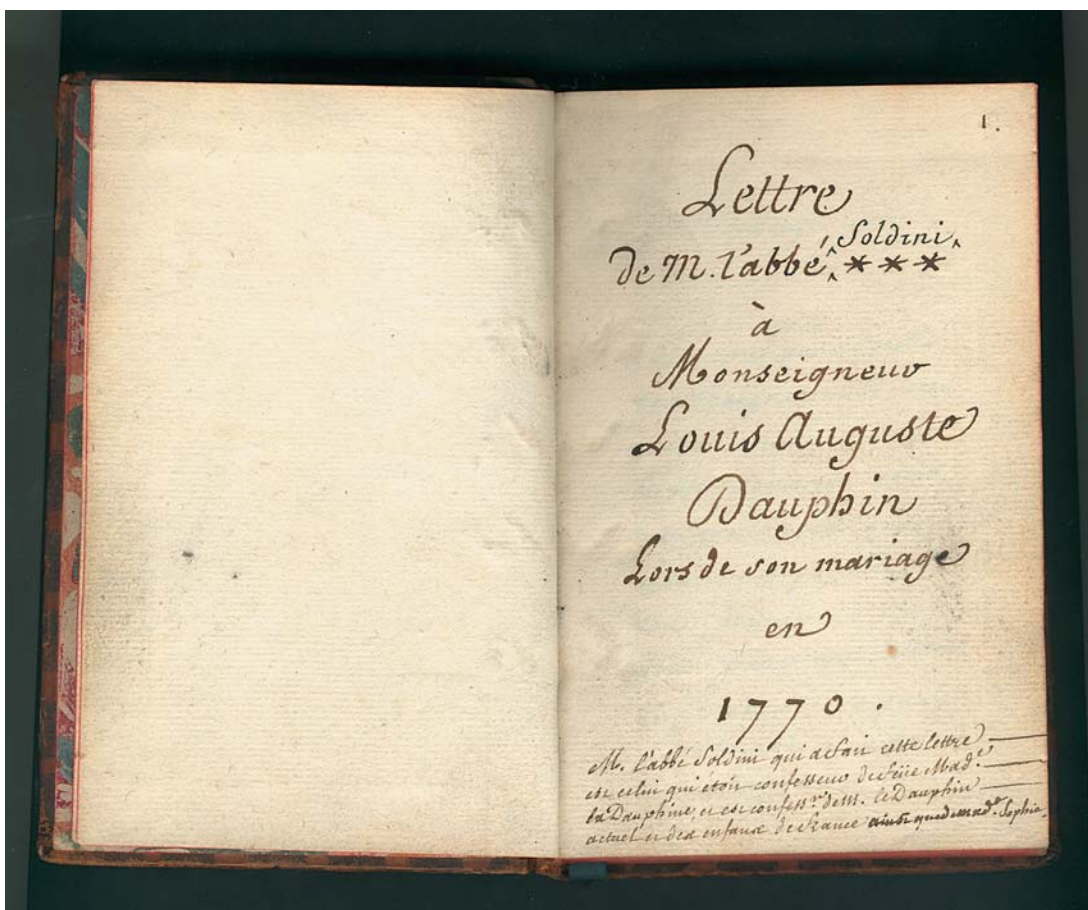 1.
Lettre
Soldini
de M. l'abbé ***
à
Monseigneur
Louis Auguste
Dauphin
Lors de son mariage
en
1770.
M. l'abbé Soldini qui a fait cette lettre
est celui qui étoit confesseur de feüe Mad.e
la Dauphine, et est confess.r de M. le Dauphin
actuel et des enfans de france ainsi que de mad.e Sophie.